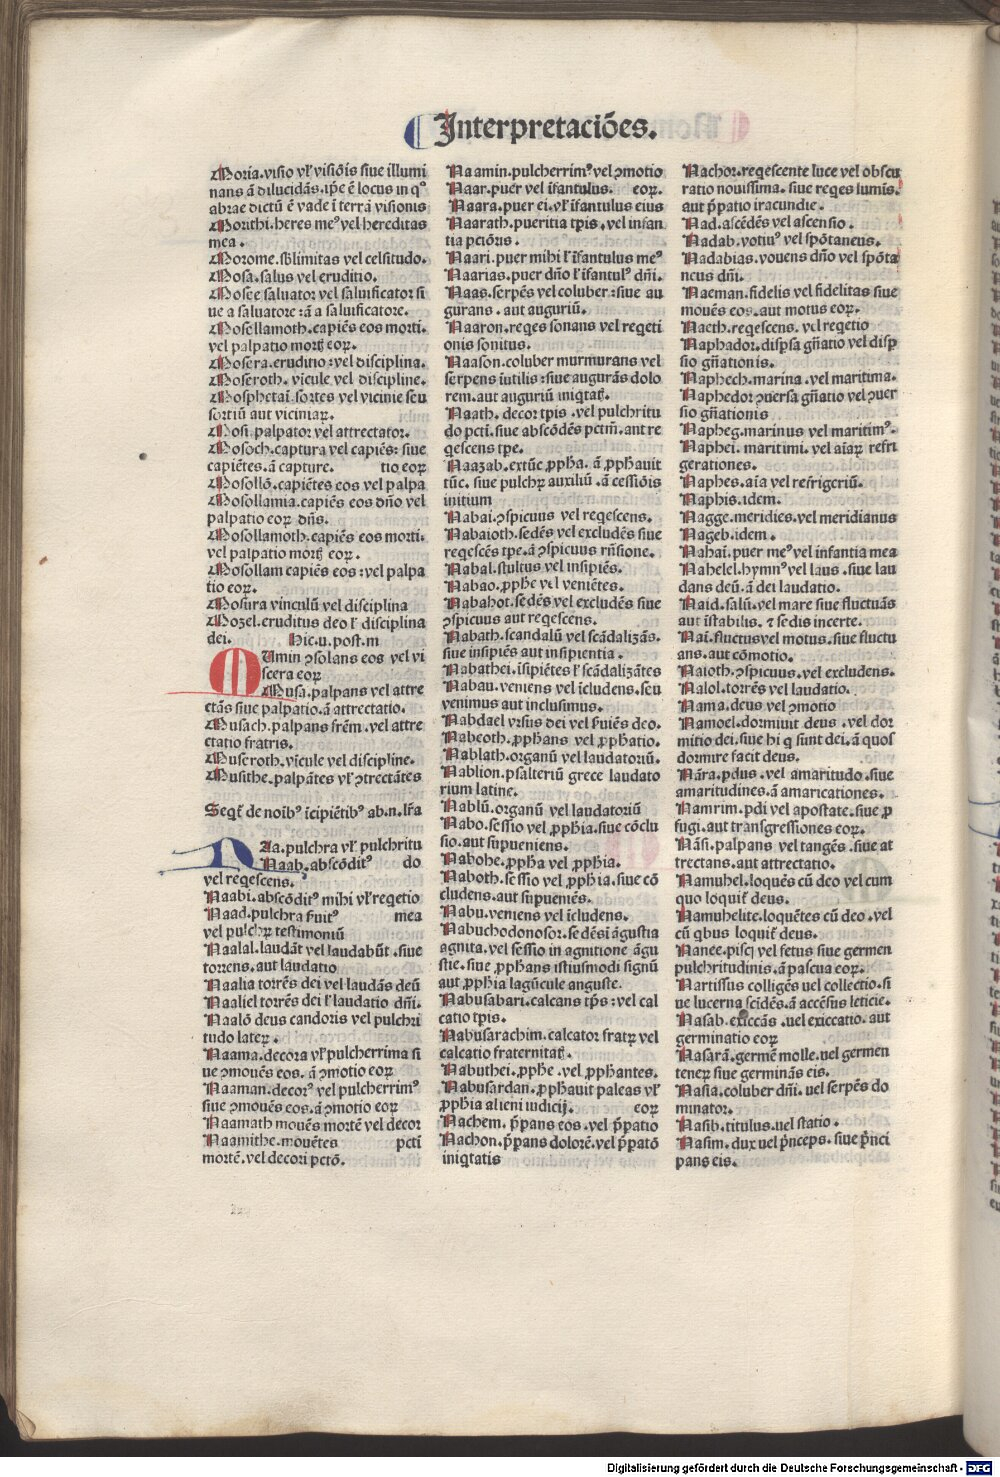 Interpretaciões.
Moria. visio vl' visiõis siue illumi
nans ã dilucidãs. ip̃e ẽ locus in qᵒ
abrae dictũ ẽ vade ĩ terrã visionis
Morithi. heres meꝰ vel hereditas
mea.
Morome. sb̃limitas vel celsitudo.
Mosa. salus vel eruditio.
Mosee saluator vel saluificator si
ue a saluatore : ã a saluificatore.
Mosellamoth. capiẽs eos morti.
vel palpatio mortꝭ eoꝝ.
Mosera. eruditio : vel disciplina.
Moseroth. vicule vel discipline.
Mosphetai. sortes vel vicinie seu
sortiũ aut viciniaꝝ.
Mosi. palpator vel attrectator.
Mosoch. captura vel capiẽs : siue
capiẽtes. ã capture. tio eoꝝ
Mosollõ. capiẽtes eos vel palpa
Mosollamia. capiẽs eos dño vel
palpatio eoꝝ dñs.
Mosollamoth. capiẽs eos morti.
vel palpatio mortꝭ eoꝝ.
Mosollam capiẽs eos : vel palpa
tio eoꝝ.
Mosura vinculũ vel disciplina
Mozel. eruditus deo l' disciplina
dei. Hic. u. post. m
MUmin ꝯsolans eos vel vi
scera eoꝝ
Musa. palpans vel attre
ctãs siue palpatio. ã attrectatio.
Musach. palpans fr̃em. vel attre
ctatio fratris.
Museroth. vicule vel discipline.
Musithe. palpãtes vl' ꝯtrectãtes
Seqt̃ de noĩbꝰ ĩcipiẽtibꝰ ab. n. lr̃a
NAa. pulchra vl' pulchritu
Naab. abscõditꝰ do
vel reqescens.
Naabi. abscõditꝰ mihi vl' reqetio
Naad. pulchra fuitꝰ mea
vel pulchꝝ testimoniũ
Naalal. laudãt vel laudabũt. siue
torrens. aut laudatio
Naalia torrẽs dei vel laudãs deũ
Naaliel torrẽs dei l' laudatio dñi.
Naalõ deus candoris vel pulchri
tudo lateꝝ.
Naama. decora vl' pulcherrima si
ue ꝯmouẽs eos. ã ꝯmotio eoꝝ
Naaman. decorꝰ vel pulcherrimꝰ
siue ꝯmouẽs eos. ã ꝯmotio eoꝝ
Naamath mouẽs mortẽ vel decor
Naamithe. mouẽtes pcti
mortẽ. vel decori pctõ.
Naamin. pulcherrimꝰ vel ꝯmotio
Naar. puer vel ĩfantulus. eoꝝ.
Naara. puer ei. vl' ĩfantulus eius
Naarath. pueritia tp̃is. vel infan
tia pctõris.
Naari. puer mihi l' ĩfantulus meꝰ
Naarias. puer dño l' ĩfantulꝰ dñi.
Naas. serpẽs vel coluber : siue au
gurans. aut auguriũ.
Naaron. reqes sonans vel reqeti
onis sonitus.
Naason. coluber murmurans vel
serpens ĩutilis : siue augurãs dolo
rem. aut auguriũ iniqtat̃.
Naath. decor tp̃is. vel pulchritu
do pcti. siue abscõdẽs pctm̃. ant re
qescens tp̃e.
Naazab. extũc ꝓpha. ã ꝓphauit
tũc. siue pulchꝝ auxiliũ. ã cessiõis
initium
Nabai. ꝯspicuus vel reqescens.
Nabaioth. sedẽs vel excludẽs siue
reqescẽs tp̃e. ã ꝯspicuus rñsione.
Nabal. stultus vel insipiẽs.
Nabao. ꝓphe vel veniẽtes.
Nabahot. sedẽs vel excludẽs siue
ꝯspicuus aut reqescens.
Nabath. scandalũ vel scãdalizãs.
siue insipiẽs aut insipientia.
Nabathei. ĩsipiẽtes l' scãdalizãtes
Nabau. veniens vel ĩcludens. seu
venimus aut inclusimus.
Nabdael vr̃sus dei vel fuiẽs deo.
Nabeoth. ꝓphans vel ꝓphatio.
Nablath. organũ vel laudatoriũ.
Nablion. psalteriũ grece laudato
rium latine.
Nablũ. organũ vel laudatoriũ
Nabo. sessio vel ꝓphia. siue cõclu
sio. aut supueniens.
Nabohe. ꝓpha vel ꝓphia.
Naboth. sessio vel ꝓphia. siue cõ
cludens. aut supueniẽs.
Nabu. veniens vel ĩcludens.
Nabuchodonosor. sedẽs ĩ ãgustia
agnita. vel sessio in agnitione ãgu
stie. siue ꝓphans istiusmodi signũ
aut ꝓphia lagũcule anguste.
Nabusabari. calcans tp̃s : vel cal
catio tp̃is.
Nabusarachim. calcator fratꝝ vel
calcatio fraternitat̃.
Nabuthei. ꝓphe. vel ꝓphantes.
Nabusardan. ꝓphauit paleas vl'
ꝓphia alieni iudicij. eoꝝ
Nachem. p̃pans eos. vel p̃patio
Nachon. p̃pans dolorẽ. vel p̃patõ
iniqtatis
Nachor. reqescente luce vel obscu
ratio nouissima. siue reqes lumĩs.
aut p̃patio iracundie.
Nad. ascẽdẽs vel ascensio.
Nadab. votiuꝰ vel spõtaneus.
Nadabias. vouens dño vel spõta
neus dñi.
Naeman. fidelis vel fidelitas siue
mouẽs eos. aut motus eoꝝ.
Naeth. reqescens. vel reqetio
Naphador. disp̃sa gñatio vel disp̃
sio gñationis.
Naphech. marina. vel maritima.
Naphedor ꝯuersa gñatio vel ꝯuer
sio gñationis
Napheg. marinus vel maritimꝰ.
Naphei. maritimi. vel aĩaꝝ refri
gerationes.
Naphes. aĩa vel refrigeriũ.
Naphis. idem.
Nagge. meridies. vel meridianus
Nageb. idem.
Nahai. puer meꝰ vel infantia mea
Nahelel. hymnꝰ vel laus. siue lau
dans deũ. ã dei laudatio.
Naid. salũ. vel mare siue fluctuãs
aut ĩstabilis. ⁊ sedis incerte.
Nai. fluctus vel motus. siue fluctu
ans. aut cõmotio.
Naioth. ꝯspicuus. vel excludens.
Nalol. torrẽs vel laudatio.
Nama. deus vel ꝯmotio
Namoel. dormiuit deus. vel dor
mitio dei. siue hi q sunt dei. ã quos
dormire facit deus.
Nãra. pdus. vel amaritudo. siue
amaritudines. ã amaricationes.
Namrim. pdi vel apostate. siue ꝓ
fugi. aut transgressiones eoꝝ.
Nãsi. palpans vel tangẽs. siue at
trectans. aut attrectatio.
Namuhel. loquẽs cũ deo vel cum
quo loquit̃ deus.
Namuhelite. loquẽtes cũ deo. vel
cũ qbus loquit̃ deus.
Nanee. pisci vel fetus siue germen
pulchritudinis. ã pascua eoꝝ.
Nartissus colligẽs uel collectio. si
ue lucerna scĩdẽs. ã accẽsus leticie.
Nasab. exiccãs. uel exiccatio. aut
germinatio eoꝝ
Nasarã. germẽ molle. uel germen
teneꝝ siue germinãs eis.
Nasia. coluber dñi. uel serpẽs do
minator.
Nasib. titulus. uel statio.
Nasim. dux uel p̃nceps. siue p̃nci
pans eis.
Digitalisierung gefördert durch die Deutsche Forschungsgemeinschaft - DFG